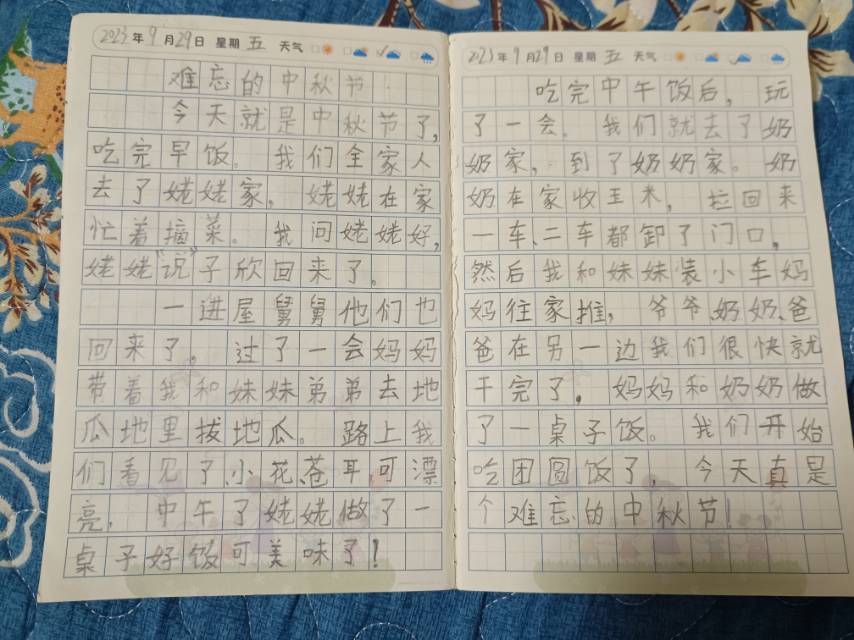 2023年9月29日 星期 五 天气
难忘的中秋节
今天就是中秋节了,
吃完早饭。我们全家人
去了姥姥家,姥姥在家
忙着摘菜。我问姥姥好,
姥姥"说"子欣回来了。
一进屋舅舅他们也
回来了。过了一会妈妈
带着我和妹妹弟弟去地
瓜地里拔地瓜。路上我
们看见了、小花、苍耳、可漂
亮,中午了姥姥做了一
桌子好饭可美味了!
2023年9月29日 星期 五 天气
吃完中午饭后,玩
了一会。我们就去了奶
奶家,到了奶奶家。奶
奶在家收玉米,拉回来
一车、二车都卸了门口,
然后我和妹妹装小车妈
妈往家推,爷爷、奶奶、爸
爸在另一边我们很快就
干完了。妈妈和奶奶做
了一桌子饭。我们开始
吃团圆饭了,今天真是
个难忘的中秋节!